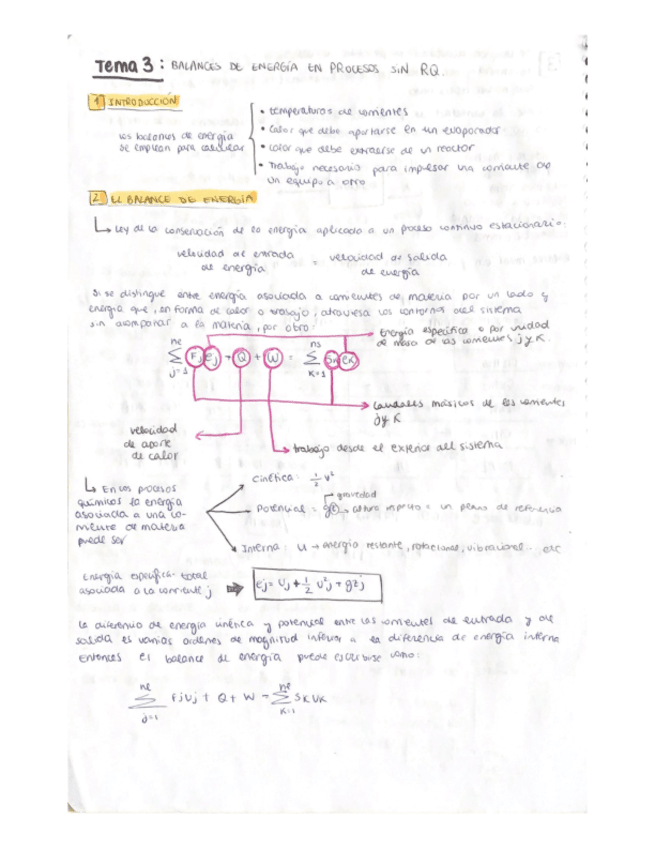 Tema 3: BALANCES DE ENERGÍA EN PROCESOS SIN RQ.
1 INTRODUCCIÓN
Los balances de energía
se emplean para calcular
• temperaturas de corrientes
• Calor que debe aportarse en un evaporador
• calor que debe extraerse de un reactor
• Trabajo necesario para impulsar una corriente de
un equipo a otro
2 EL BALANCE DE ENERGÍA
Ley de la conservación de la energía aplicada a un proceso continuo estacionario:
velocidad de entrada
de energía
=
velocidad de salida
de energía
Si se distingue entre energía asociada a corrientes de materia por un lado y
energía que, en forma de calor o trabajo, atraviesa los contornos del sistema
sin acompañar a la materia, por otro:
ne ns
∑ Fj ej + Q + W = ∑ Sk ek
j=1 K=1
Energía específica o por unidad
de masa de las corrientes j y K.
caudales másicos de las corrientes
j y K
velocidad
de aporte
de calor
trabajo desde el exterior del sistema
En los procesos
químicos la energía
asociada a una co-
rriente de materia
puede ser
Cinética: ½ v²
gravedad
Potencial = gz → altura respecto a un plano de referencia
Interna: U → energía rotacional, vibracional... etc
Energía específica total
asociada a la corriente j
ej = Uj + ½ v²j + gzj
La diferencia de energía cinética y potencial entre las corrientes de entrada y de
salida es varios ordenes de magnitud inferior a la diferencia de energía interna
Entonces el balance de energía puede escribirse como:
ne ne
∑ FjUj + Q + W = ∑ SkUk
j=1 K=1